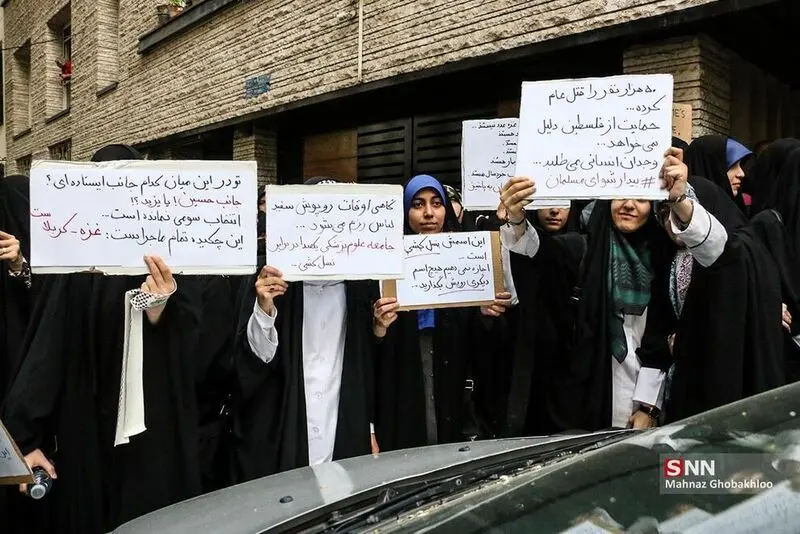 تو در این میان کدام جانب ایستاده ای؟
جانب حسین! یا یزید؟!
انتخاب سومی نمانده است...
این چکیده تمام ماجراست: غزه - کربلاست
گاهی اوقات روپوش سفید
لباس رزم می شود...
جامعه علوم پزشکی یکصدا در برابر
نسل کشی...
این اسمش نسل کشی
است...
اجازه نمی دهیم هیچ اسم
دیگری رویش بگذارید...
غزه عدد نیستند
هستند
۵۰ هزار نفر را قتل عام
کرده...
حمایت از فلسطین دلیل
نمی خواهد...
وجدان انسانی می طلبد...
#بیدار_شوای_مسلمان
SNN
Mahnaz Ghobakhloo